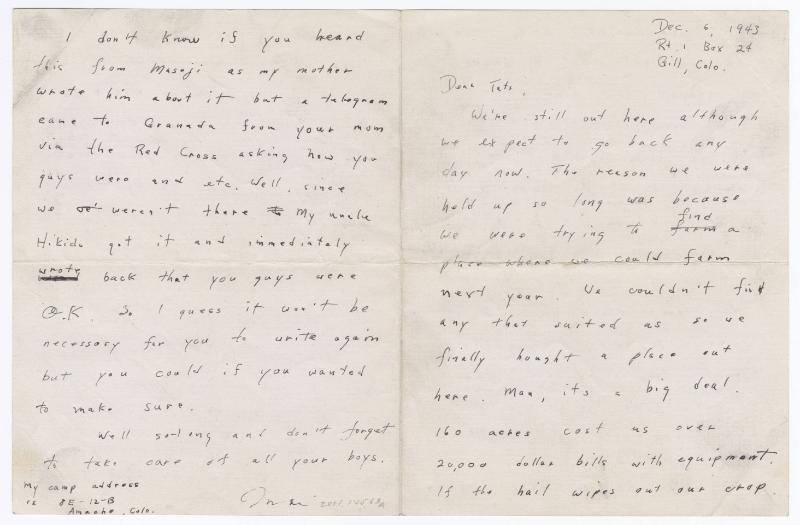 Dec. 6, 1943
Rt. 1 Box 24
Gill, Colo.
Dear Tats,
We're still out here although
we expect to go back any
day now. The reason we were
held up so long was because
we were trying to farm find a
place where we could farm
next year. We couldn't find
any that suited us so we
finally bought a place out
here. Man, its a big deal.
160 acres cost us over
20,000 dollar bills with equipment.
If the hail wipes out our crop
I don't know if you heard
this from Masoji as my mother
wrote him about it but a telegram
came to Granada from your mom
via the Red Cross asking how you
guys were and etc. Well, since
we weren't there My uncle
Hikida got it and immediately
wrote back that you guys were
O.K. So I guess it won't be
necessary for you to write again
but you could if you wanted
to make sure.
Well so-long and don't forget
to take care of all your boys.
My camp address
12 8E-12-B
Amache, Colo.